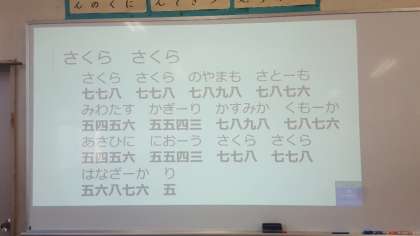 さくら　さくら
さくら　さくら　のやまも　さとーも
七七八　七七八　七八九八　七八七六
みわたす　かぎーり　かすみか　くもーか
五四五六　五五四三　七八九八　七八七六
あさひに　におーう　さくら　さくら
五四五六　五五四三　七七八　七七八
はなざーか　り
五六八七六　五